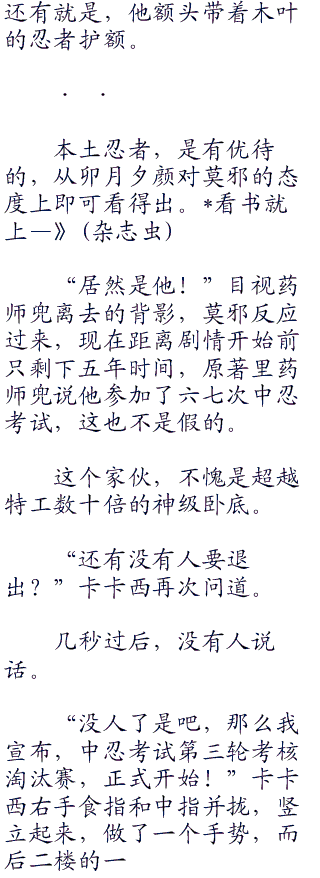 还有就是，他额头带着木叶
的忍者护额。
． ．
本土忍者，是有优待
的，从卯月夕颜对莫邪的态
度上即可看得出。*看书就
上—》(杂志虫)
“居然是他！”目视药
师兜离去的背影，莫邪反应
过来，现在距离剧情开始前
只剩下五年时间，原著里药
师兜说他参加了六七次中忍
考试，这也不是假的。
这个家伙，不愧是超越
特工数十倍的神级卧底。
“还有没有人要退
出？”卡卡西再次问道。
几秒过后，没有人说
话。
“没人了是吧，那么我
宣布，中忍考试第三轮考核
淘汰赛，正式开始！”卡卡
西右手食指和中指并拢，竖
立起来，做了一个手势，而
后二楼的一